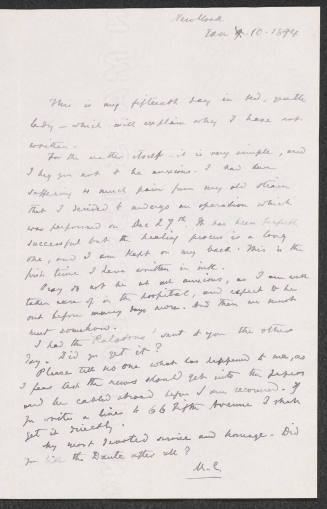 New York
Jan 10 - 1894
This is my fifteenth day in bed, gentle
lady - which will explain why I have not
written.
For the matter itself it is very simple, and
I beg you not to be anxious. I had been
suffering so much pain from my old strain
that I decided to undergo an operation which
was performed on Dec 27th. It has been perfectly
successful but the healing process is a long
one, and I am kept on my back. This is the
first time I have written in ink.
Pray do not be at all anxious, as I am well
taken care of in the hospital, and expect to be
out before many days more. And then we must
meet somehow.
I had the "Paladins" sent to you the other
day. Did you get it?
Please tell no one what has happened to me, as
I fear lest the news should get into the papers
and be cabled abroad before I am recovered. If
you write a line to 66 Fifth Avenue I shall
get it directly.
My most devoted service and homage. Did
you like the Dante after all?